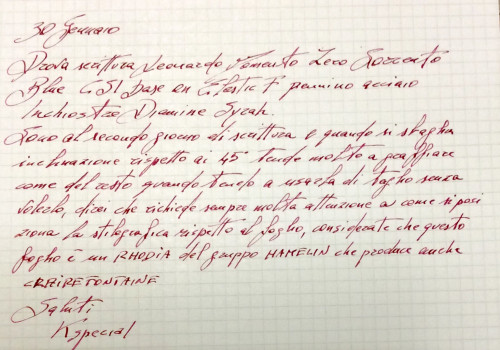 30 Gennaio
Prova scrittura Leonardo Momento Zero Sorrento
Blue & SI base en Elastic F pennino acciaio
Inchiostro Diamine Syrah.
Sono al secondo giorno di scrittura e quando si sbaglia
inclinazione rispetto ai 45° tende molto a graffiare
come del resto quando tendo a usarla di taglio senza
volerlo, direi che richiede sempre molta attenzione a come si posi
ziona la stilografica rispetto al foglio, considerate che questo
foglio è un RHODIA del gruppo HAMELIN che produce anche
CLAIREFONTAINE
Saluti
Kspecial